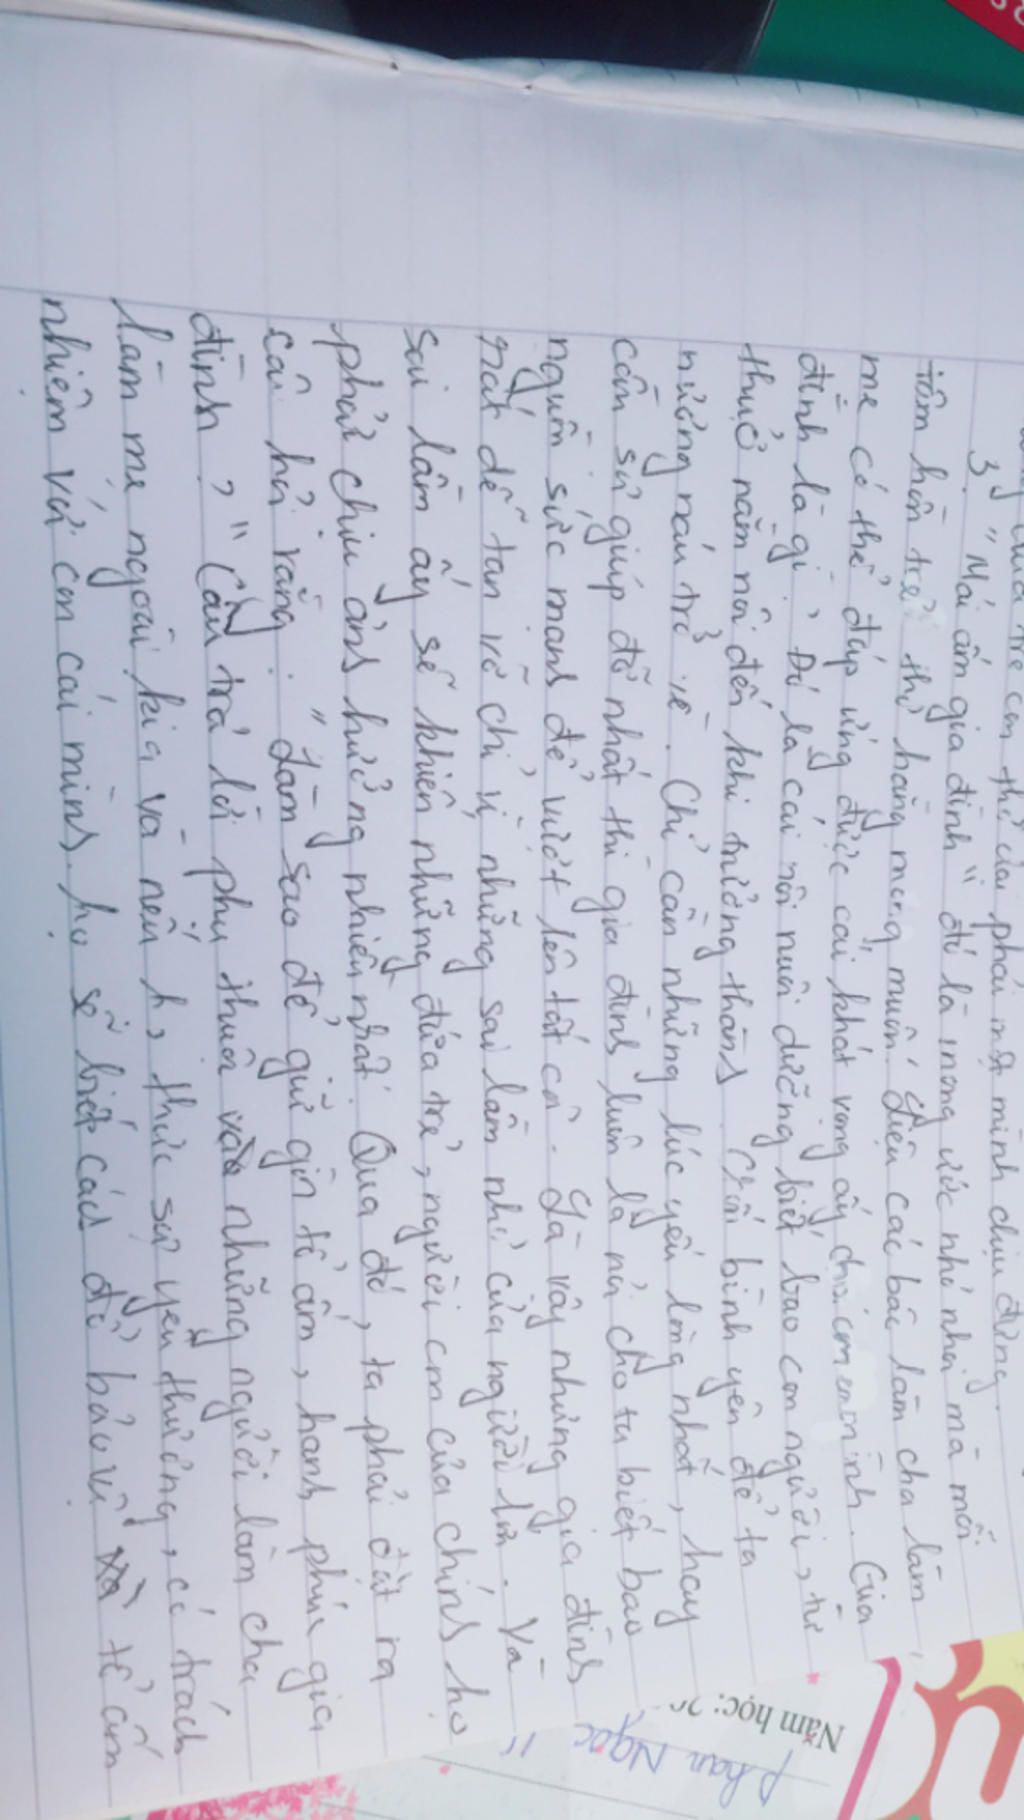 con thơ dại phải một mình chịu đựng.
3. "Mái ấm gia đình" đó là mong ước nhỏ nhoi mà mỗi
tâm hồn trẻ thơ hằng mong muốn. Liệu các bậc làm cha làm
mẹ có thể đáp ứng được cái khát vọng ấy cho con em mình. Gia
đình là gì? Đó là cái nôi nuôi dưỡng biết bao con người, từ
thuở nằm nôi đến khi trưởng thành. Chốn bình yên để ta
nương náu trở về. Chỉ cần những lúc yếu lòng nhất, hay
cần sự giúp đỡ nhất thì gia đình luôn là nơi cho ta biết bao
nguồn sức mạnh để vượt lên tất cả. Ấy vậy nhưng gia đình
rất dễ tan vỡ chỉ vì những sai lầm nhỏ của người lớn. Và
sai lầm ấy sẽ khiến những đứa trẻ, người con của chính họ
phải chịu ảnh hưởng nhiều nhất. Qua đó, ta phải đặt ra
câu hỏi rằng: "Làm sao để giữ gìn tổ ấm, hạnh phúc gia
đình?" Câu trả lời phụ thuộc vào những người làm cha
làm mẹ ngoài kia và nếu họ thực sự yêu thương, có trách
nhiệm với con cái mình. họ sẽ biết cách để bảo vệ tổ ấm
Năm học: 20
Phan Ngọc